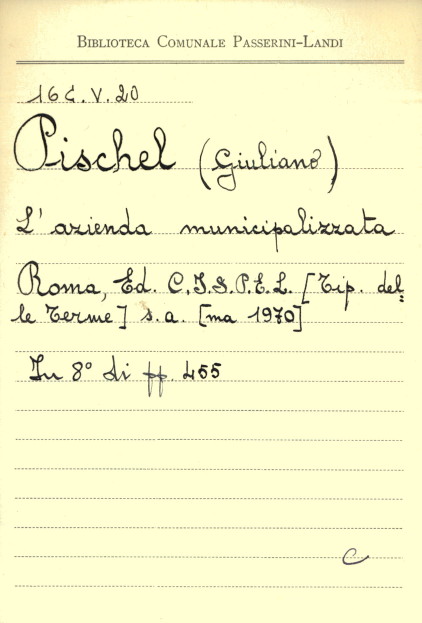 BIBLIOTECA COMUNALE PASSERINI-LANDI
16 C. V. 20
Pischel (Giuliano)
L'azienda municipalizzata
Roma, Ed. C.I.S.P.E.L. [Tip. del=
le Terme] s.a. [ma 1970]
In 8° di pp. 455
C